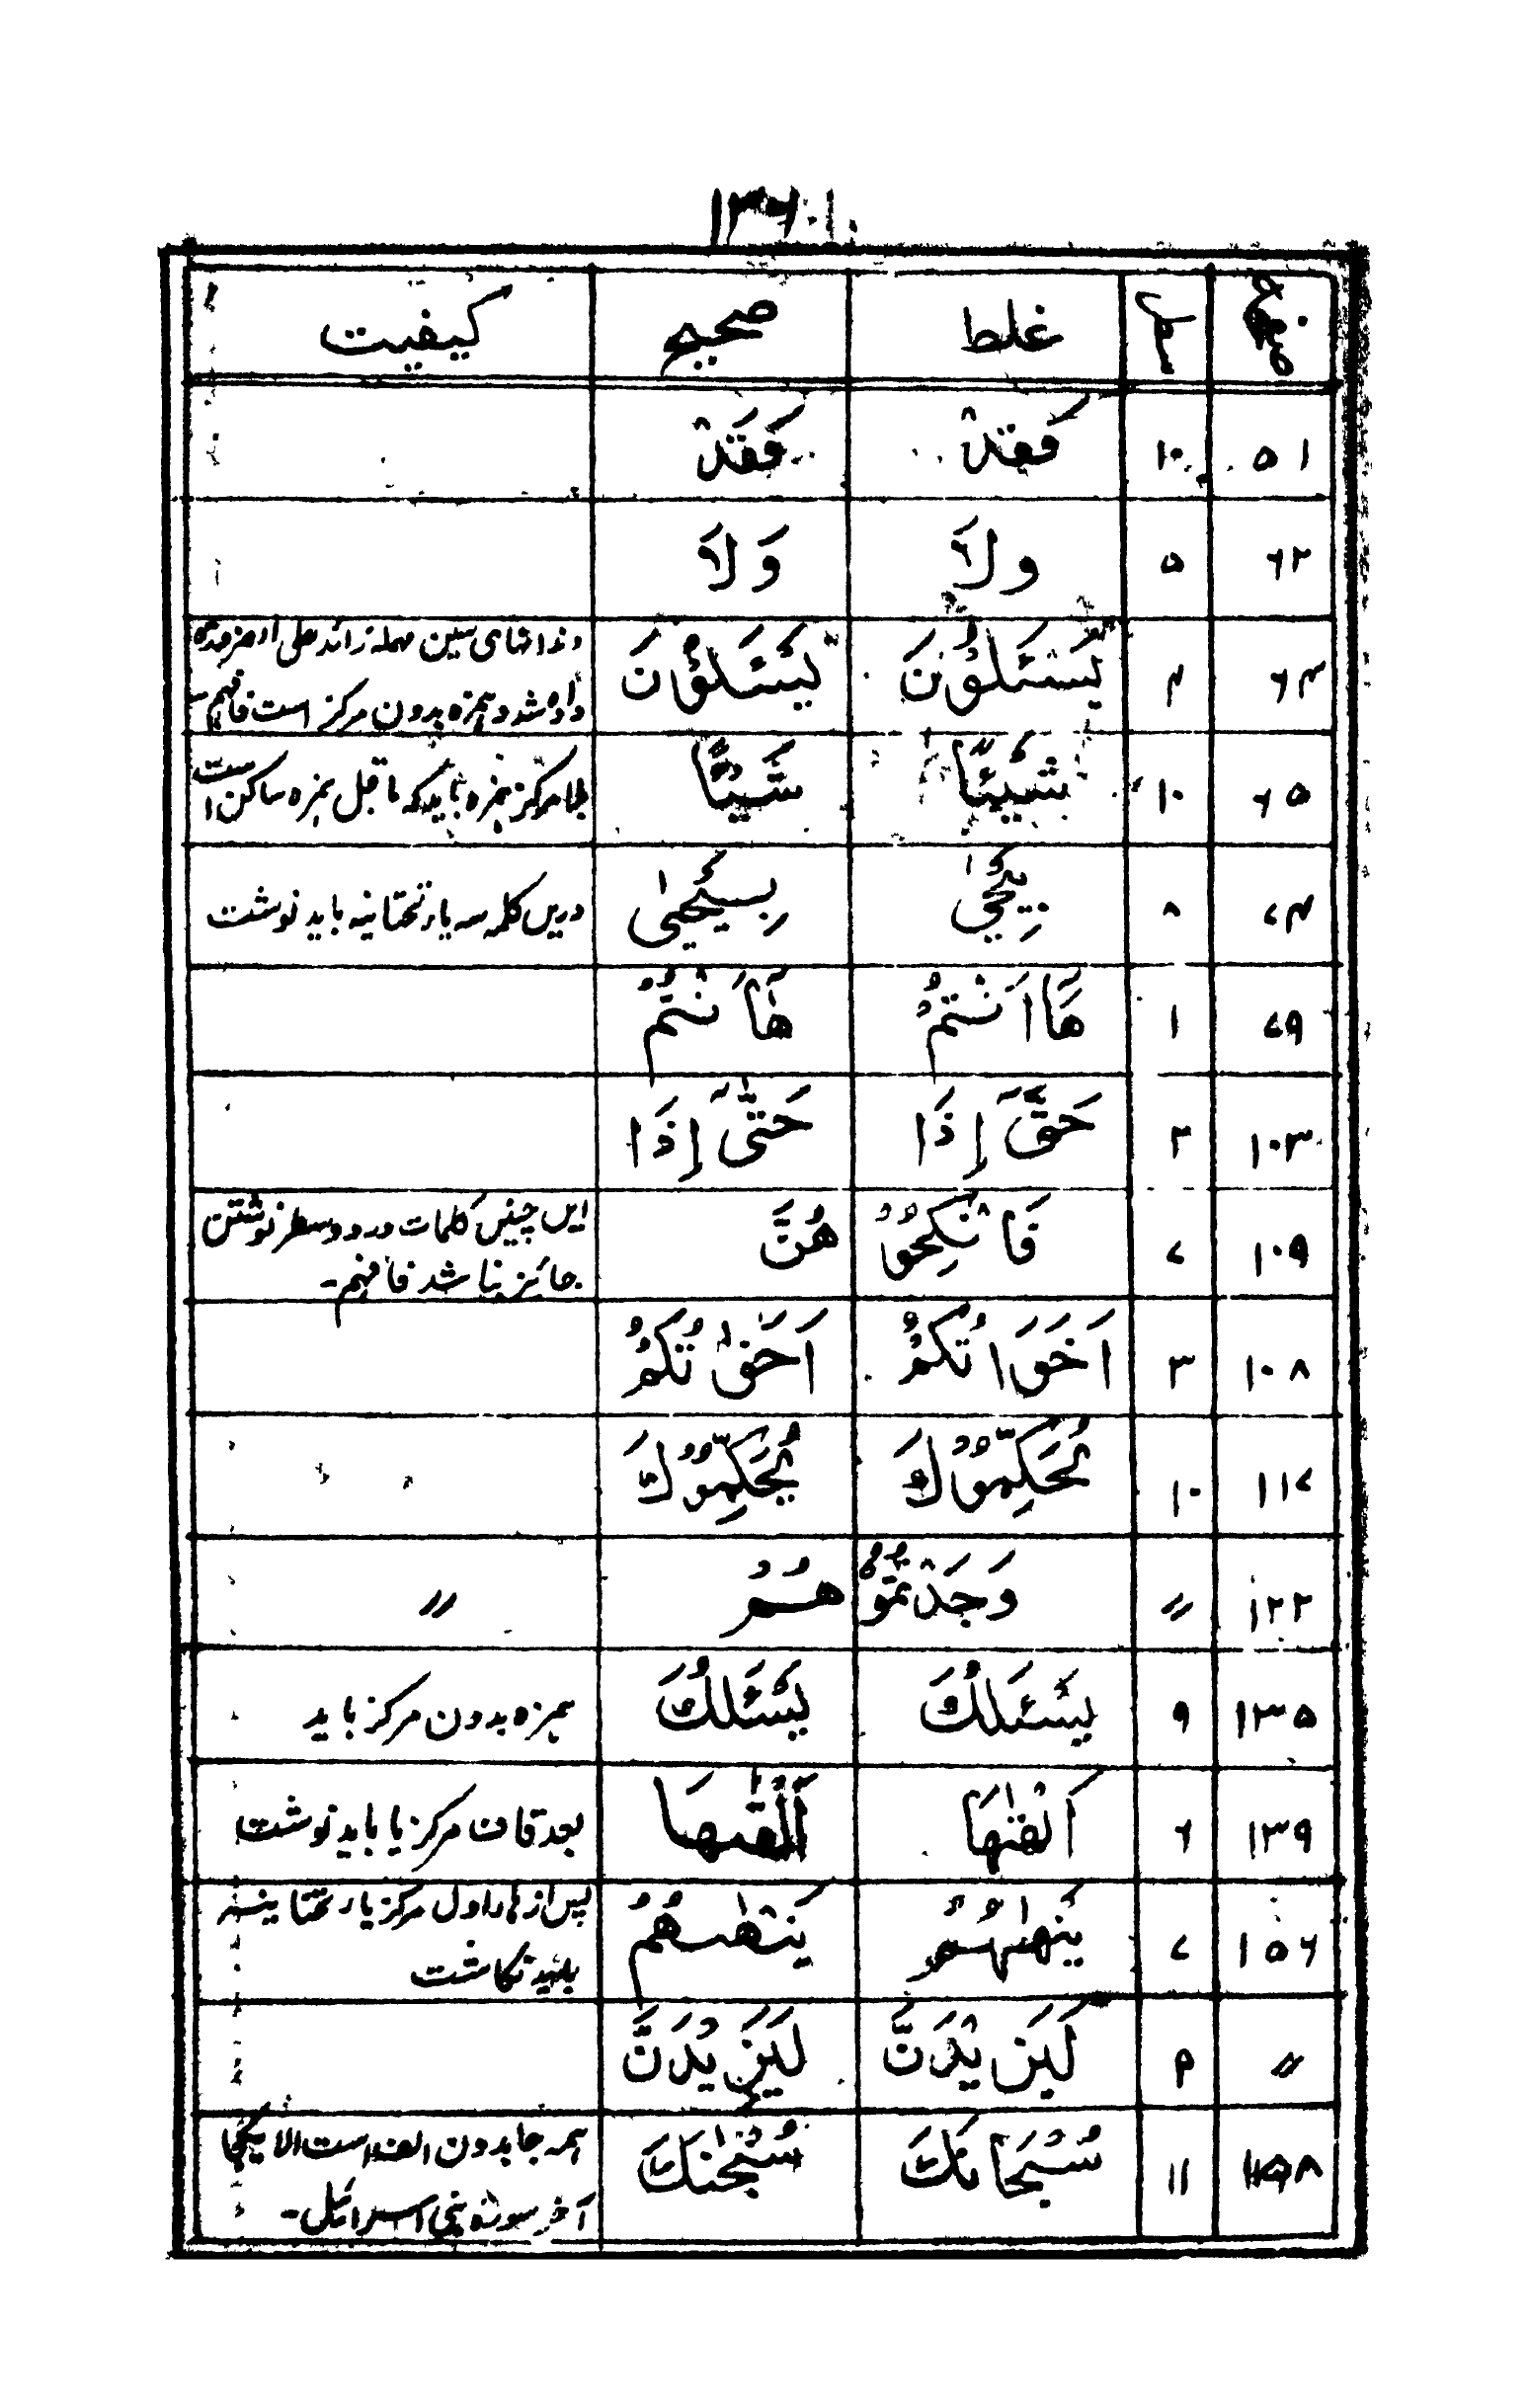 ۱۳۶
صفحہ سطر غلط صحیح کیفیت
۵۱ ۱۰ فَقَدْ فَقَدْ
۶۲ ۵ ولَا وَلَا
۶۴ ۴ يَسْئَلُوْنَ يَسْئَلُوْنَ دندانہای سین مہملہ زائد
داده شد و ہمزہ بدون مرکز است فافہم
۶۵ ۱۰ شَيْئًا شَيْئًا مرکز ہمزہ نباید کہ ماقبل ہمزہ ساکن است
۷۴ ۸ يُحْيٰ دریں کلمہ سہ یاء تحتانیہ باید نوشت
۷۹ ۱ هَااَنْتُمْ هٰٓاَنْتُمْ
۱۰۳ ۲ حَتَّى إِذَا حَتّٰى إِذَا
۱۰۹ ۷ فَانْكِحُوْ هُنَّ ایں چنیں کلمات در دو سطر نوشتن
جائز نباشد فافہم۔
۱۰۸ ۳ اَخَوَاتُكُمْ اَخَوٰتُكُمْ
۱۱۷ ۱۰ يُحَكِّمُوْكَ يُحَكِّمُوْكَ
۱۲۲ // وَجَدْتُمُوْ هُمْ //
۱۳۵ ۹ يَسْئَلُكَ يَسْئَلُكَ ہمزہ بدون مرکز باید
۱۳۹ ۶ اَلْقٰهَا اَلْقٰىهَا بعد قاف مرکز یا باید نوشت
۱۵۶ ۷ يَنْهٰهُمُ يَنْهٰىهُمُ پس از ہاء اول مرکز یاء تحتانیہ
باید نگاشت
// ۹ لَيَزِيْدَنَّ لَيَزِيْدَنَّ
۱۵۸ ۱۱ سُبْحَانَكَ سُبْحٰنَكَ ہمہ جا بدون الف است الا یکجا
آخر سورہ بنی اسرائیل۔